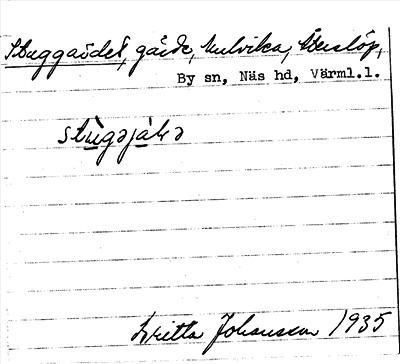 Stuggärdet, gärde, Hulvika, Stenslöp,
By sn, Näs hd, Värml.l.
stùgəjà̤ḷə
Britta Johansson 1935